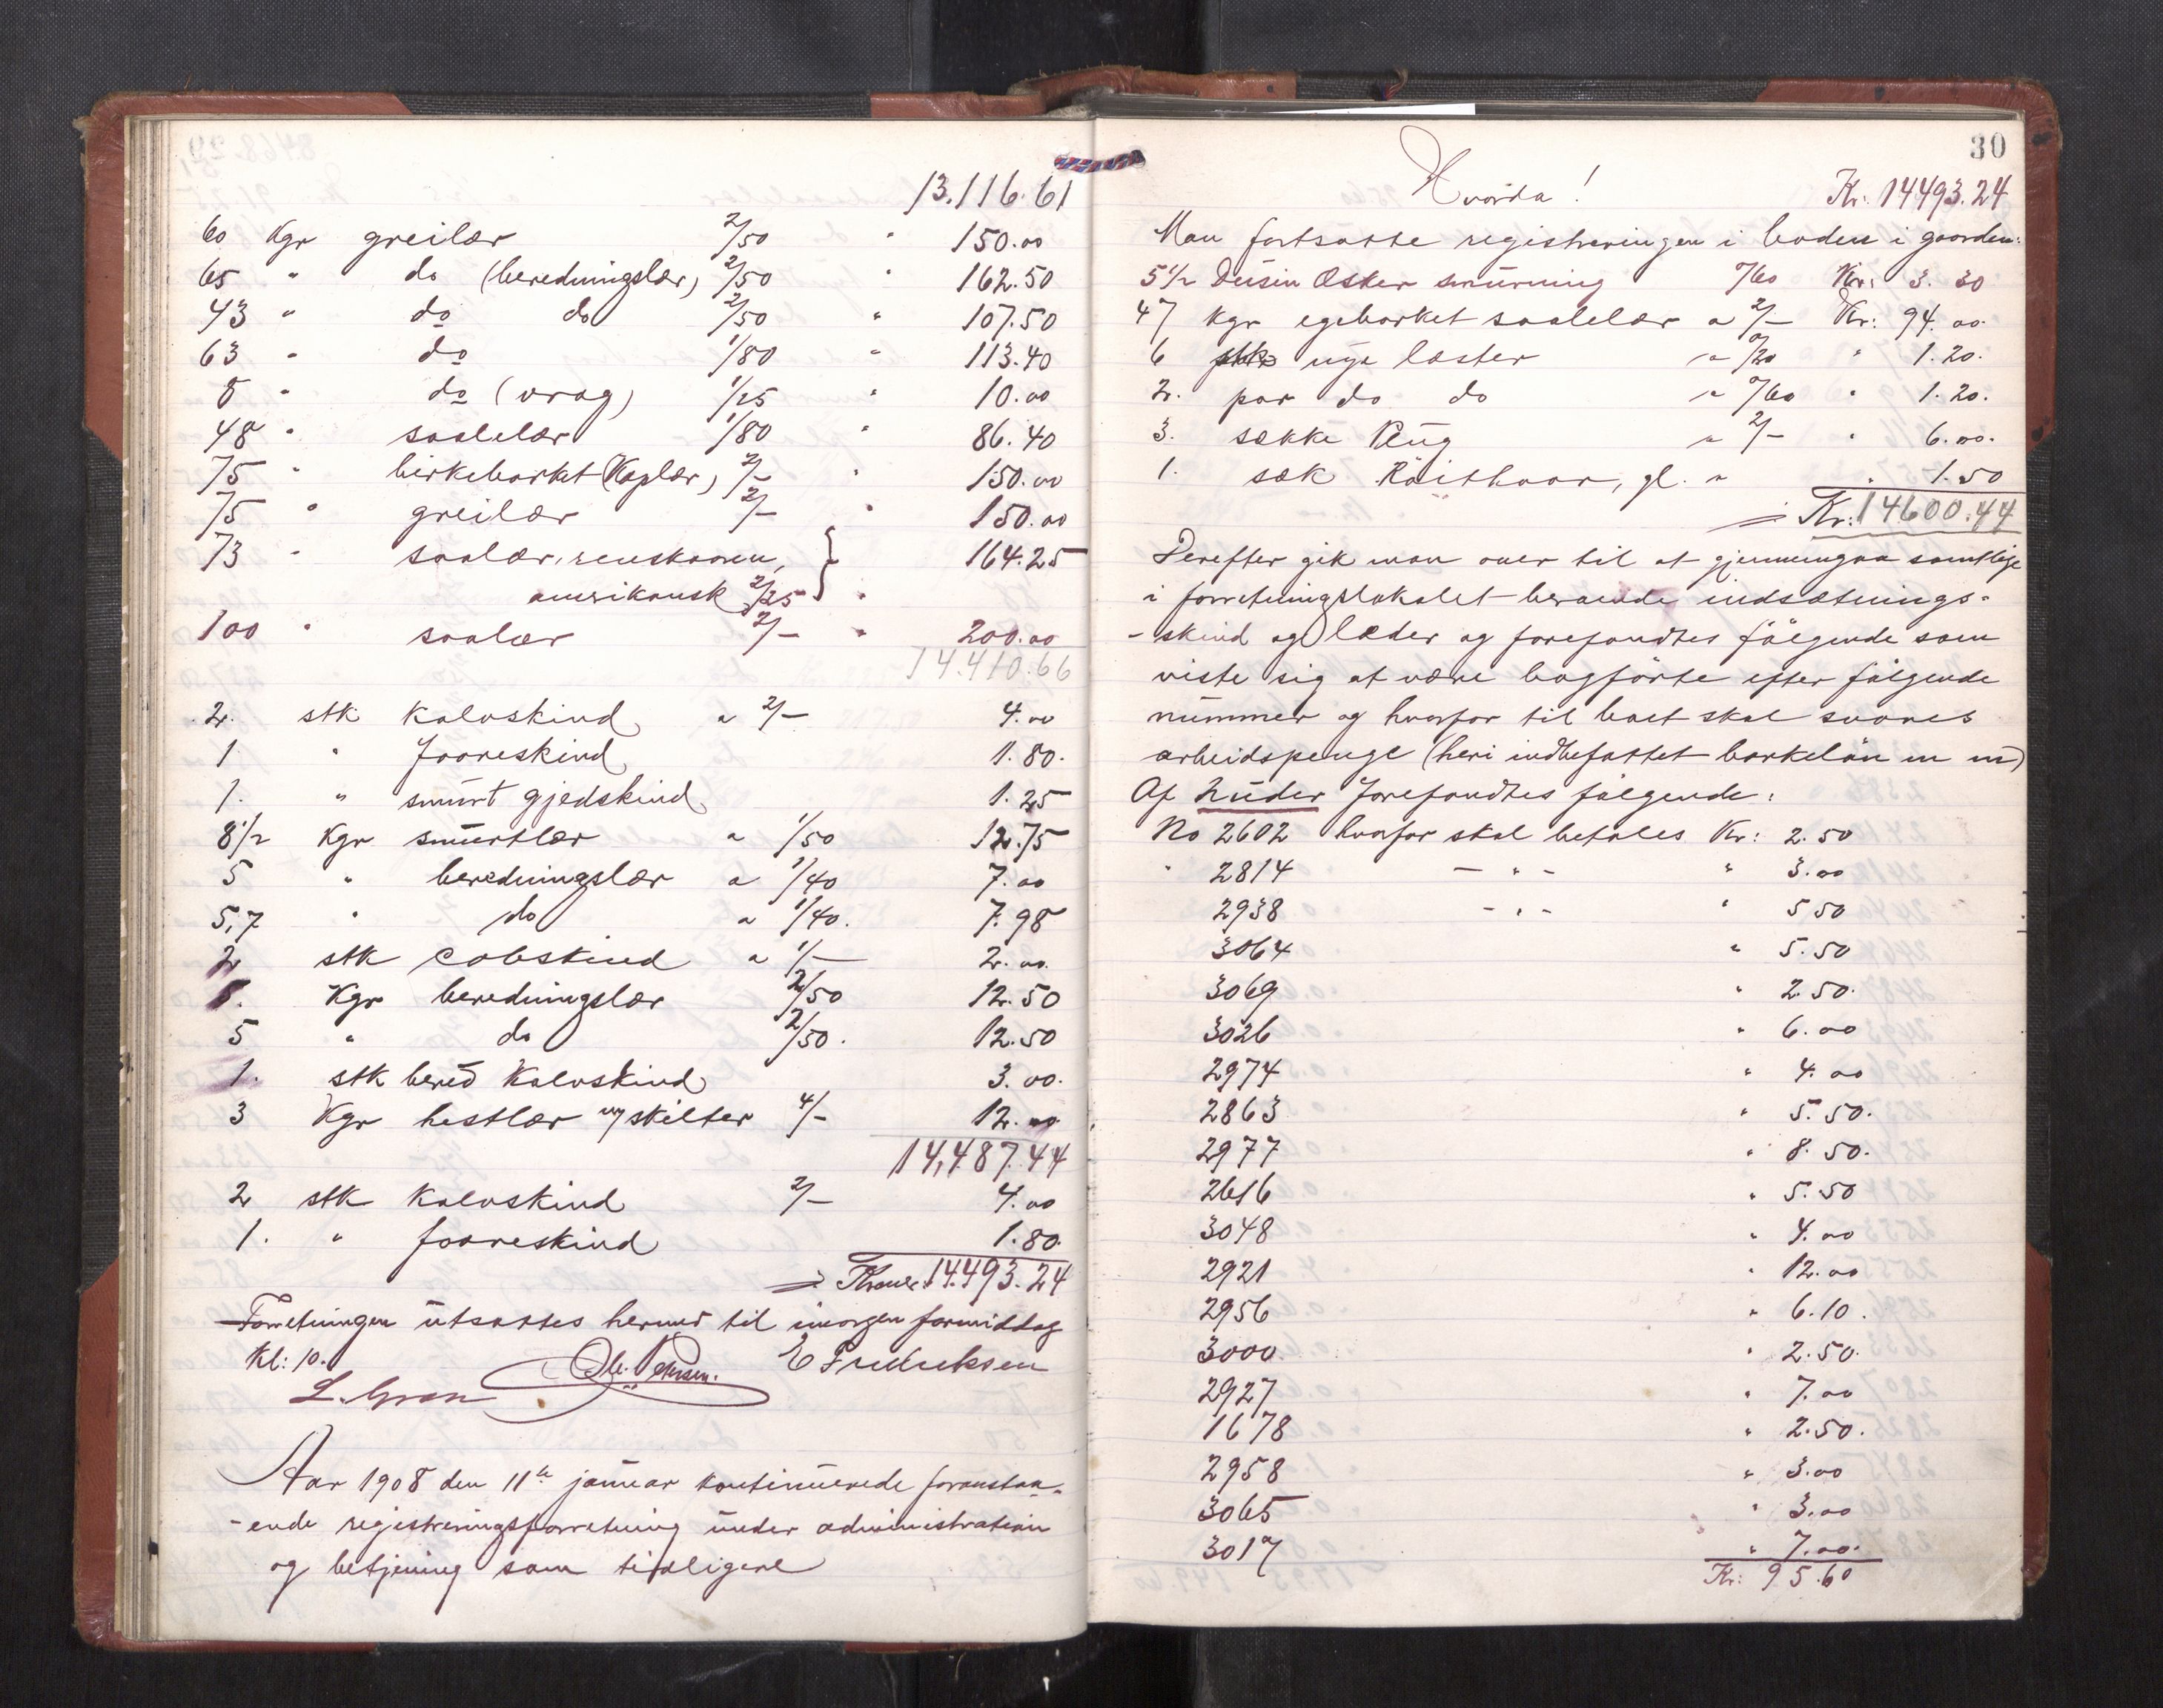 13.116.61
60 Kgr greilær 2/50 " 150.00
65 " do (beredningslær) 2/50 " 162.50
43 " do do 2/50 " 107.50
63 " do 1/80 " 113.40
8 " do (vrag) 1/25 " 10.00
48 " saalelær 1/80 " 86.40
75 " birkebarket (Kaplær) 2/- " 150.00
75 " greilær 2/- " 150.00
73 " saalær, renskaaren, } 164.25
amerikansk 2/25 "
100 " saalær 2/- " 200.00
14.410.66
2. stk Kalvskind a 2/- 4.00
1 " Faareskind 1.80.
1. " smurt gjedskind 1.25
8 1/2 Kgr smurtlær a 1/50 12.75
5 " beredningslær a 1/40 7.00
5,7 " do a 1/40. 7.98
2 stk Cobskind a 1/- 2.00.
5. Kgr beredningslær 2/50 12.50
5 " do 2/50. 12.50
1. stk bered Kalvskind 3.00.
3 Kgr hestlær og skilter 4/- 12.00
14,487.44
2 stk Kalvskind 2/- 4.00
1. " faareskind 1.80.
= Kroner 14.493.24
Forretningen utsattes hermed til imorgen formiddag
Kl: 10.
Ole Pedersen. E Fredriksen
L. Gran
Aar 1908 den 11te januar kontinuerede foranstaa-
-ende registreringsforretning under administration
og betjening som tidligere
30
Hvorda!
Kr: 14493.24
Man fortsatte registreringen i boden i gaarden:
5 1/2 Dusin Esker smurning "/60 Kr: 3.30
47 Kgr egebarket saalelær a 2/- Kr: 94.00.
6 stk nye læster a "/20 " 1.20.
2. par do do a "/60 " 1.20.
3. sække Rug a 2/- " 6.00.
1. sæk Råithaar, gl. a " 1.50
= Kr: 14600.44
Derefter gik man over til at gjennemgaa samtlige
i forretningslokalet beroende indsætnings-
-skind og læder og forefandtes følgende som
viste sig at være bogførte efter følgende
nummer og hvorfor til boet skal svares
arbeidspenge (heri indbefattet barkeløn m m)
Af huder forefandtes følgende:
No 2602 hvorfor skal betales Kr: 2.50
" 2814 - " - " 3.00
2938 - " - " 5 50
3064 " 5.50
3069 " 2.50.
3026 " 6.00
2974 " 4.00
2863 " 5.50.
2977 " 8.50.
2616 " 5.50
3048 " 4.00
2921 " 12.00
2956 " 6.10.
3000. " 2.50.
2927 " 7.00
1678 " 2.50.
2958 " 3.00
3065 " 3.00
3017 " 7.00.
Kr: 95.60